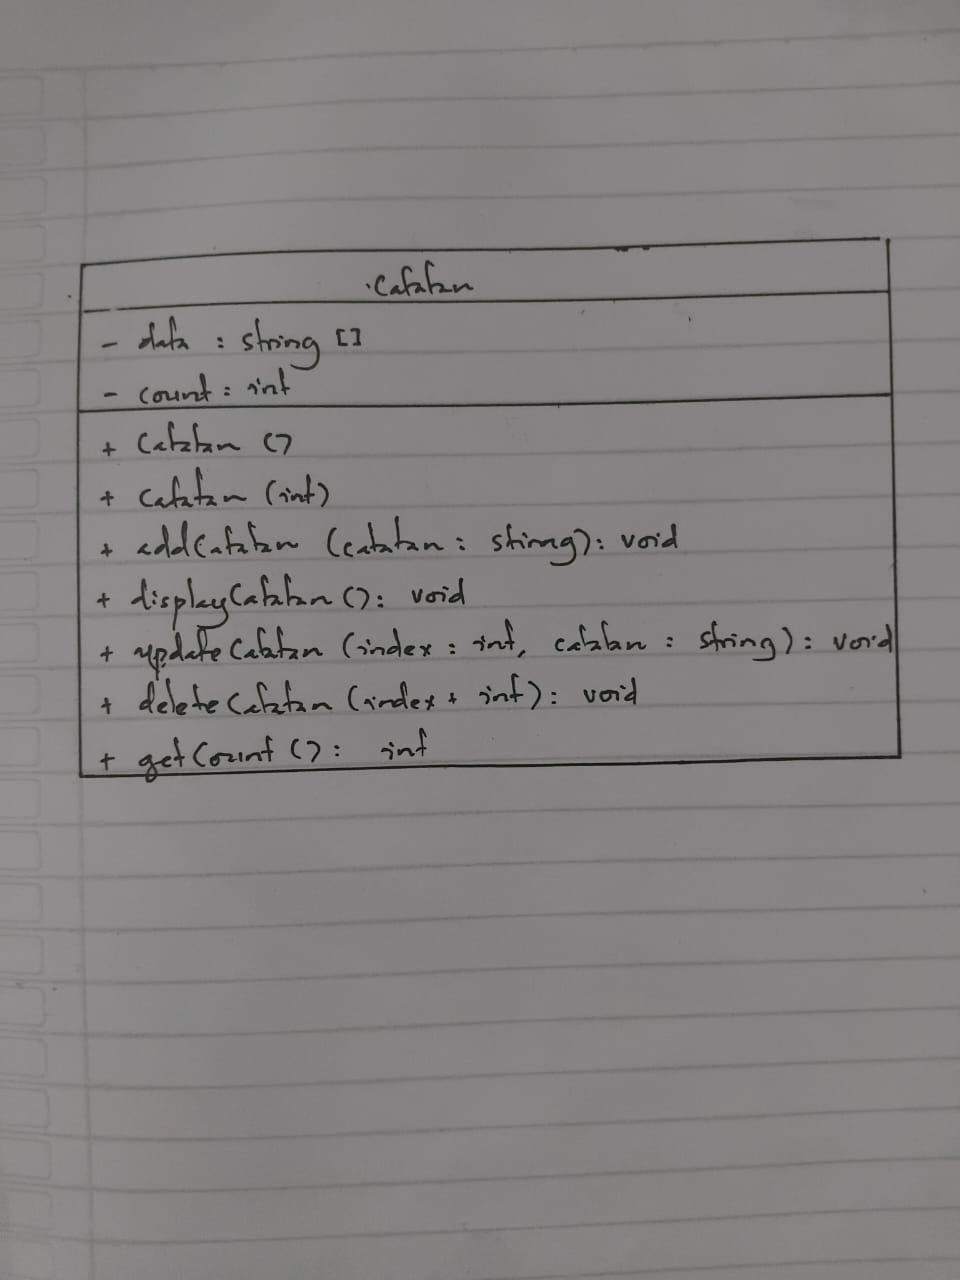 Catatan
- data : string []
- count : int
+ Catatan ()
+ Catatan (int)
+ addCatatan (catatan : string) : void
+ displayCatatan () : void
+ updateCatatan (index : int, catatan : string) : void
+ deleteCatatan (index : int) : void
+ getCount () : int